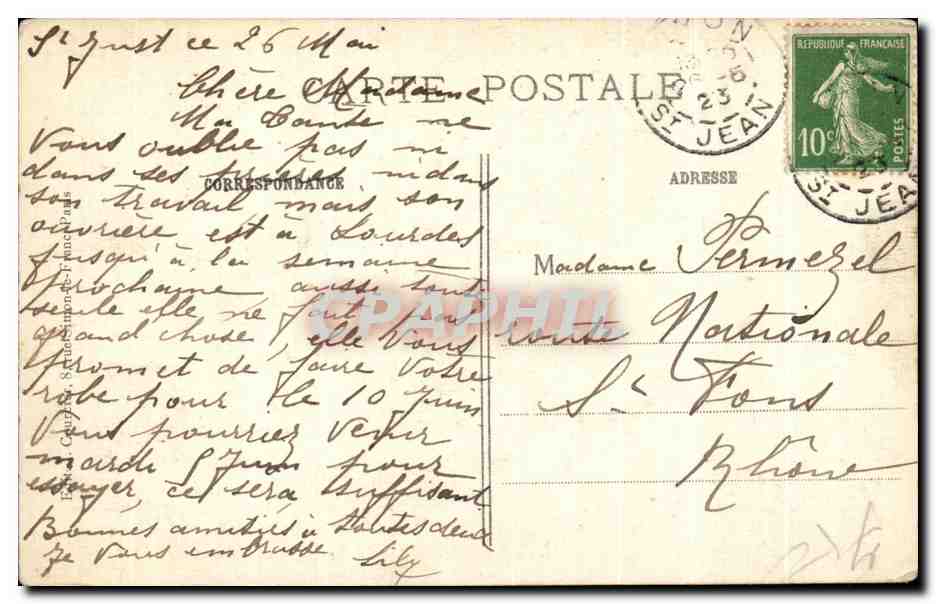 St Just ce 26 Mai
CARTE POSTALE
Chère Madame
Ma Tante ne
vous oublie pas ni
dans ses prières ni dans
son travail mais son
ouvrière est à Lourdes
jusqu'à la semaine
prochaine aussi tout
seule elle ne fait pas
grand chose, elle vous
promet de faire votre
robe pour le 10 Juin
Vous pourriez venir
mardi 5 Juin pour
essayer, ce sera suffisant
Bonnes amitiés à toutes deux
Je vous embrasse
Lily
CORRESPONDANCE
ADRESSE
Madame Permezel
route Nationale
St Fons
Rhône
REPUBLIQUE FRANÇAISE
10c
POSTES
23
ST JEAN
23
ST JEAN
CPAPHIL